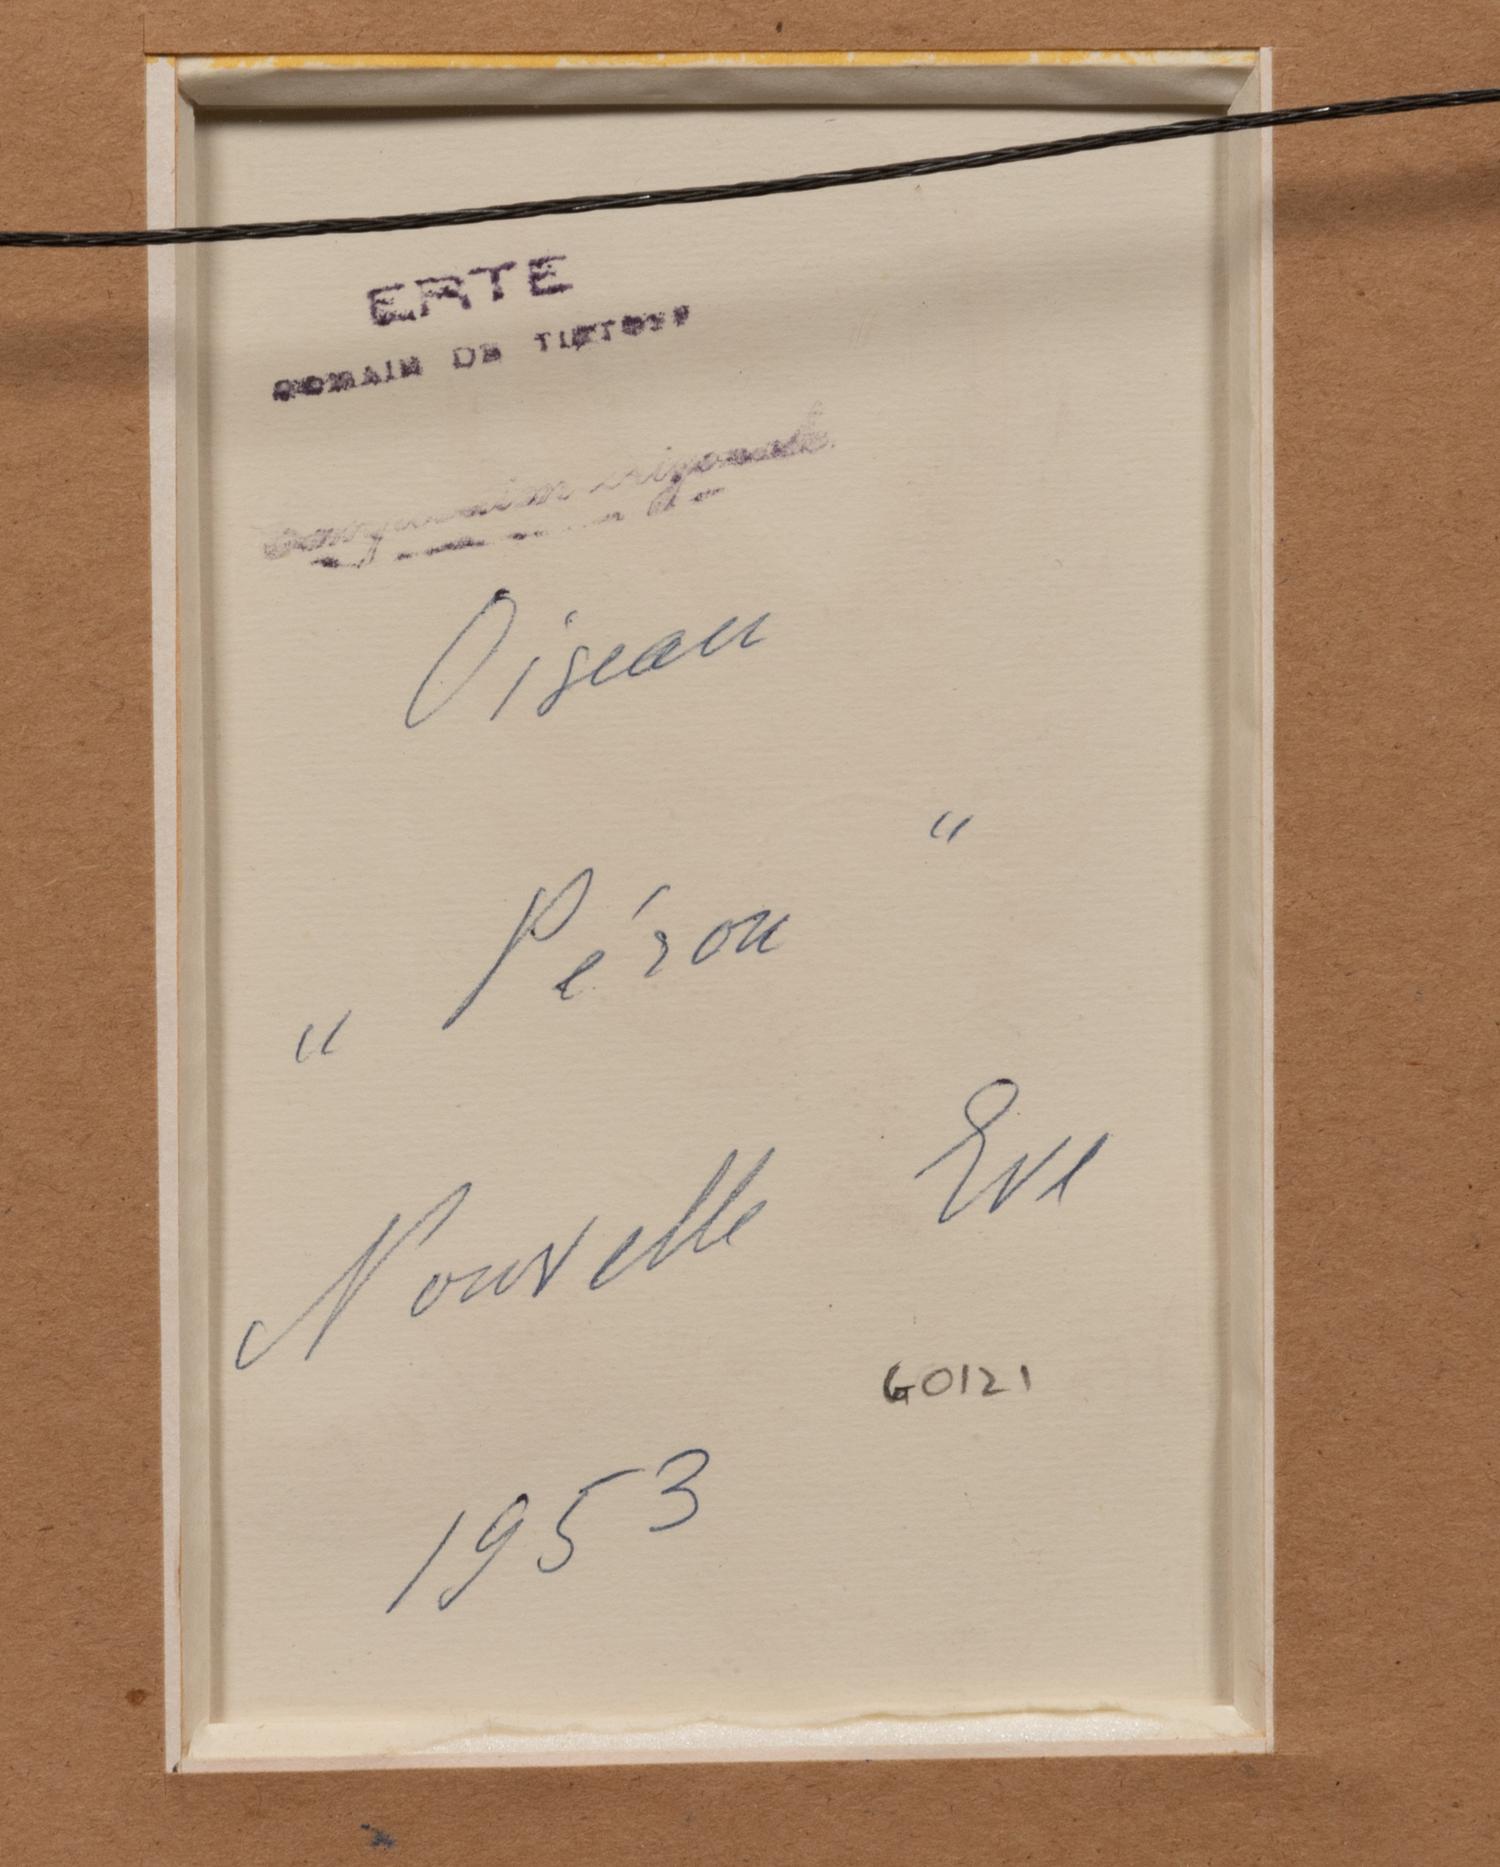 ERTE
ROMAIN DE TIRTOFF
Composition originale
Oiseau
" Pérou "
Nouvelle Eve
G0121
1953